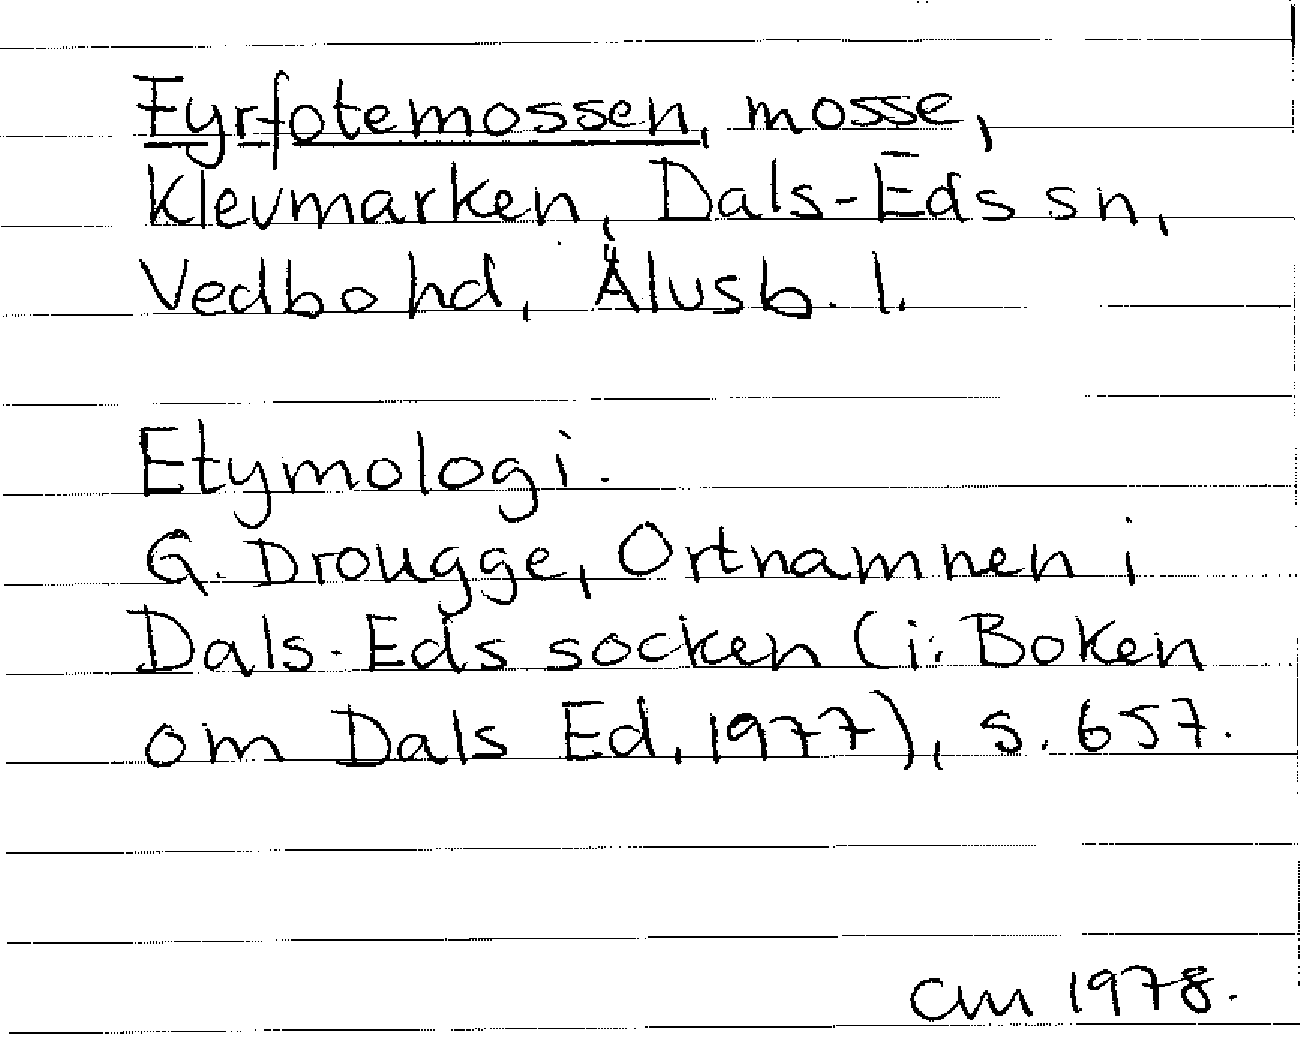 Fyrfotemossen, mosse,
Klevmarken, Dals-Eds sn,
Vedbo hd, Älvsb. l.
Etymologi.
G. Drougge, Ortnamnen i
Dals-Eds socken (i: Boken
om Dals Ed, 1977), s. 657.
CM 1978.